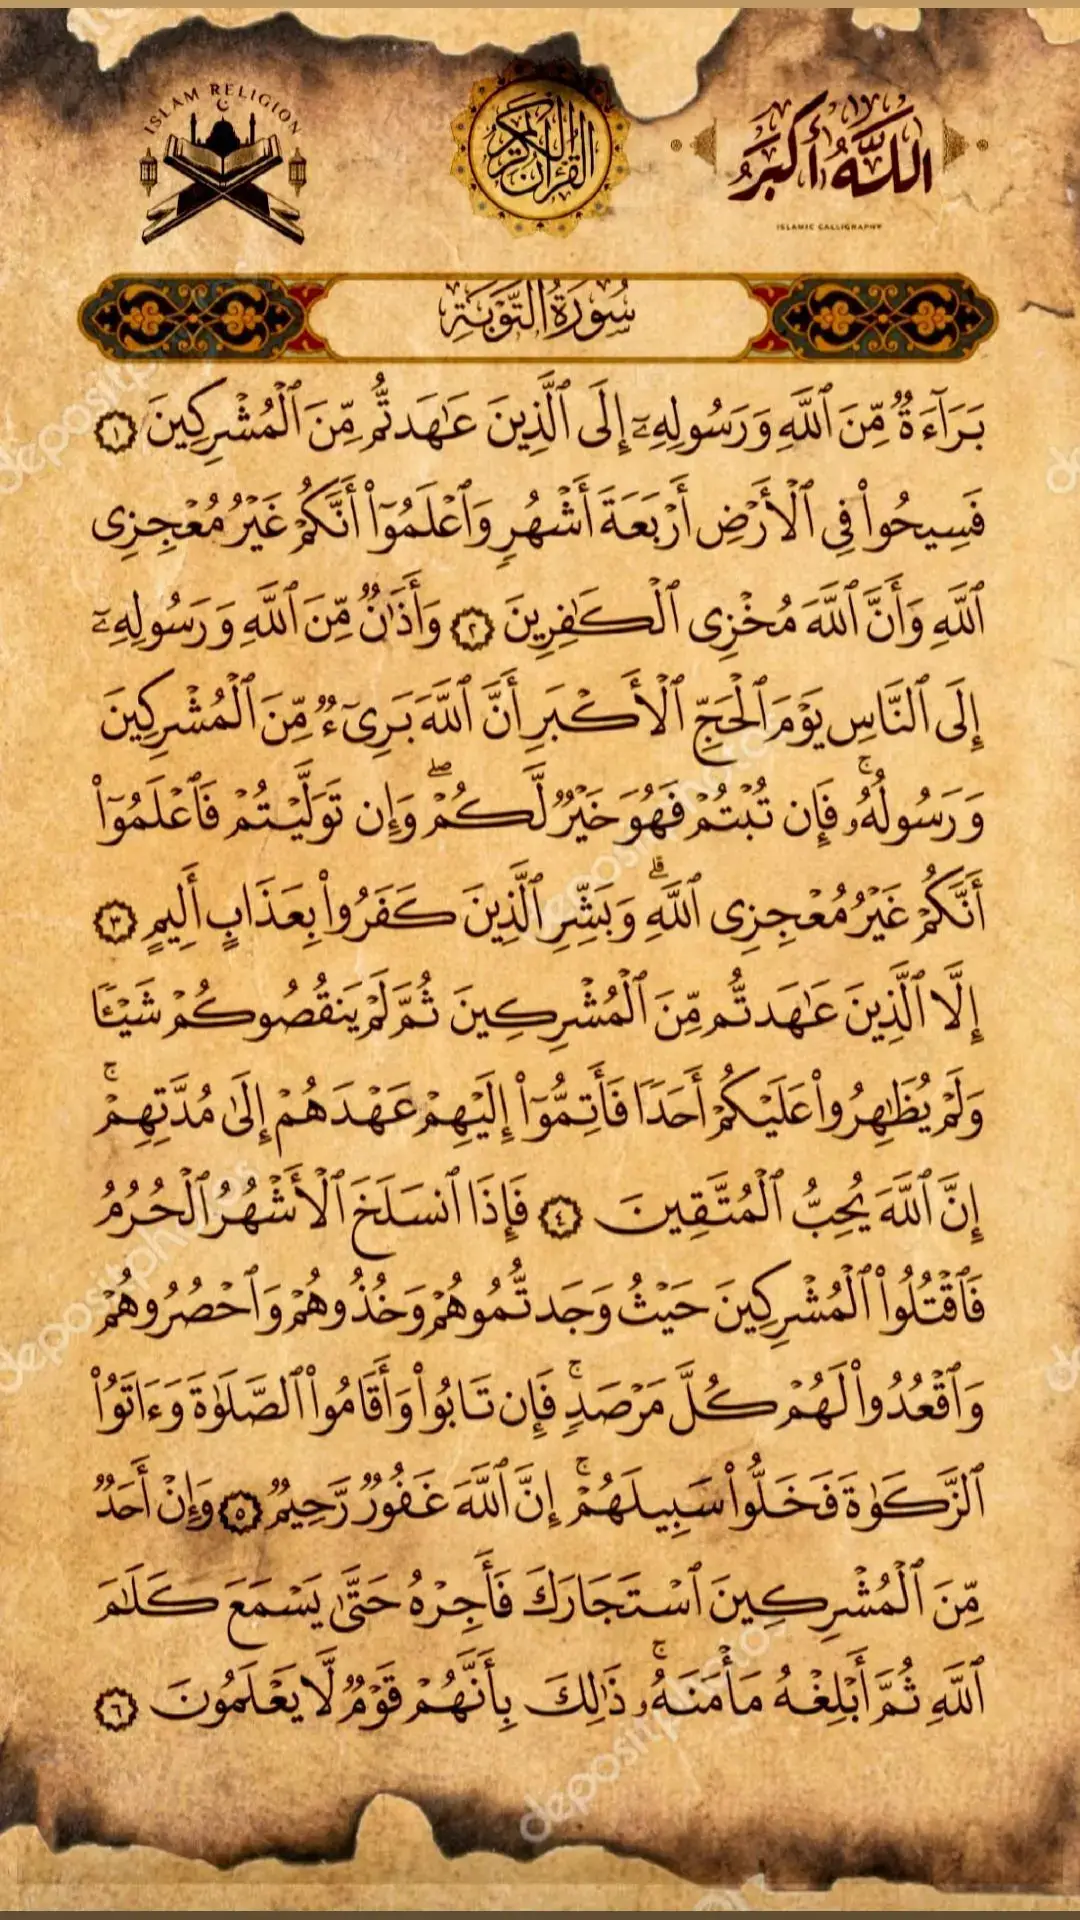 ISLAM RELIGION
القرآن الكريم
اللَّهُ أَكْبَرُ
ISLAMIC CALLIGRAPHY
سُورَةُ التَّوْبَةِ
بَرَآءَةٌ مِّنَ ٱللَّهِ وَرَسُولِهِۦٓ إِلَى ٱلَّذِينَ عَٰهَدتُّم مِّنَ ٱلْمُشْرِكِينَ ١
فَسِيحُوا۟ فِى ٱلْأَرْضِ أَرْبَعَةَ أَشْهُرٍ وَٱعْلَمُوٓا۟ أَنَّكُمْ غَيْرُ مُعْجِزِى
ٱللَّهِ وَأَنَّ ٱللَّهَ مُخْزِى ٱلْكَٰفِرِينَ ٢ وَأَذَٰنٌ مِّنَ ٱللَّهِ وَرَسُولِهِۦٓ
إِلَى ٱلنَّاسِ يَوْمَ ٱلْحَجِّ ٱلْأَكْبَرِ أَنَّ ٱللَّهَ بَرِىٓءٌ مِّنَ ٱلْمُشْرِكِينَ
وَرَسُولُهُۥ ۚ فَإِن تُبْتُمْ فَهُوَ خَيْرٌ لَّكُمْ ۖ وَإِن تَوَلَّيْتُمْ فَٱعْلَمُوٓا۟
أَنَّكُمْ غَيْرُ مُعْجِزِى ٱللَّهِ ۗ وَبَشِّرِ ٱلَّذِينَ كَفَرُوا۟ بِعَذَابٍ أَلِيمٍ ٣
إِلَّا ٱلَّذِينَ عَٰهَدتُّم مِّنَ ٱلْمُشْرِكِينَ ثُمَّ لَمْ يَنقُصُوكُمْ شَيْـًٔا
وَلَمْ يُظَٰهِرُوا۟ عَلَيْكُمْ أَحَدًا فَأَتِمُّوٓا۟ إِلَيْهِمْ عَهْدَهُمْ إِلَىٰ مُدَّتِهِمْ ۚ
إِنَّ ٱللَّهَ يُحِبُّ ٱلْمُتَّقِينَ ٤ فَإِذَا ٱنسَلَخَ ٱلْأَشْهُرُ ٱلْحُرُمُ
فَٱقْتُلُوا۟ ٱلْمُشْرِكِينَ حَيْثُ وَجَدتُّمُوهُمْ وَخُذُوهُمْ وَٱحْصُرُوهُمْ
وَٱقْعُدُوا۟ لَهُمْ كُلَّ مَرْصَدٍ ۚ فَإِن تَابُوا۟ وَأَقَامُوا۟ ٱلصَّلَوٰةَ وَءَاتَوُا۟
ٱلزَّكَوٰةَ فَخَلُّوا۟ سَبِيلَهُمْ ۚ إِنَّ ٱللَّهَ غَفُورٌ رَّحِيمٌ ٥ وَإِنْ أَحَدٌ
مِّنَ ٱلْمُشْرِكِينَ ٱسْتَجَارَكَ فَأَجِرْهُ حَتَّىٰ يَسْمَعَ كَلَٰمَ
ٱللَّهِ ثُمَّ أَبْلِغْهُ مَأْمَنَهُۥ ۚ ذَٰلِكَ بِأَنَّهُمْ قَوْمٌ لَّا يَعْلَمُونَ ٦
depositphotos